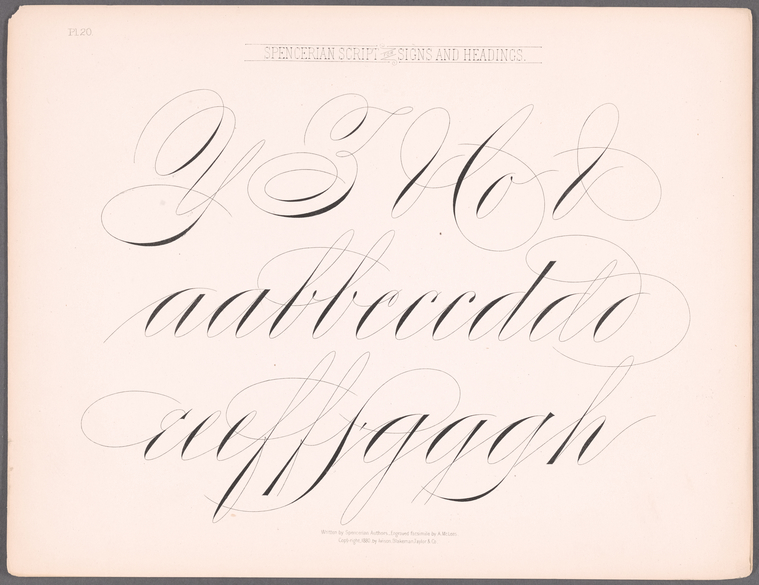 Pl. 20.
SPENCERIAN SCRIPT FOR SIGNS AND HEADINGS.
Y Z No &
aabbccccddd
eeefffgggh
Written by Spencerian Authors,
Copyright, 1880 by Ivison, Blakeman, Taylor & Co.